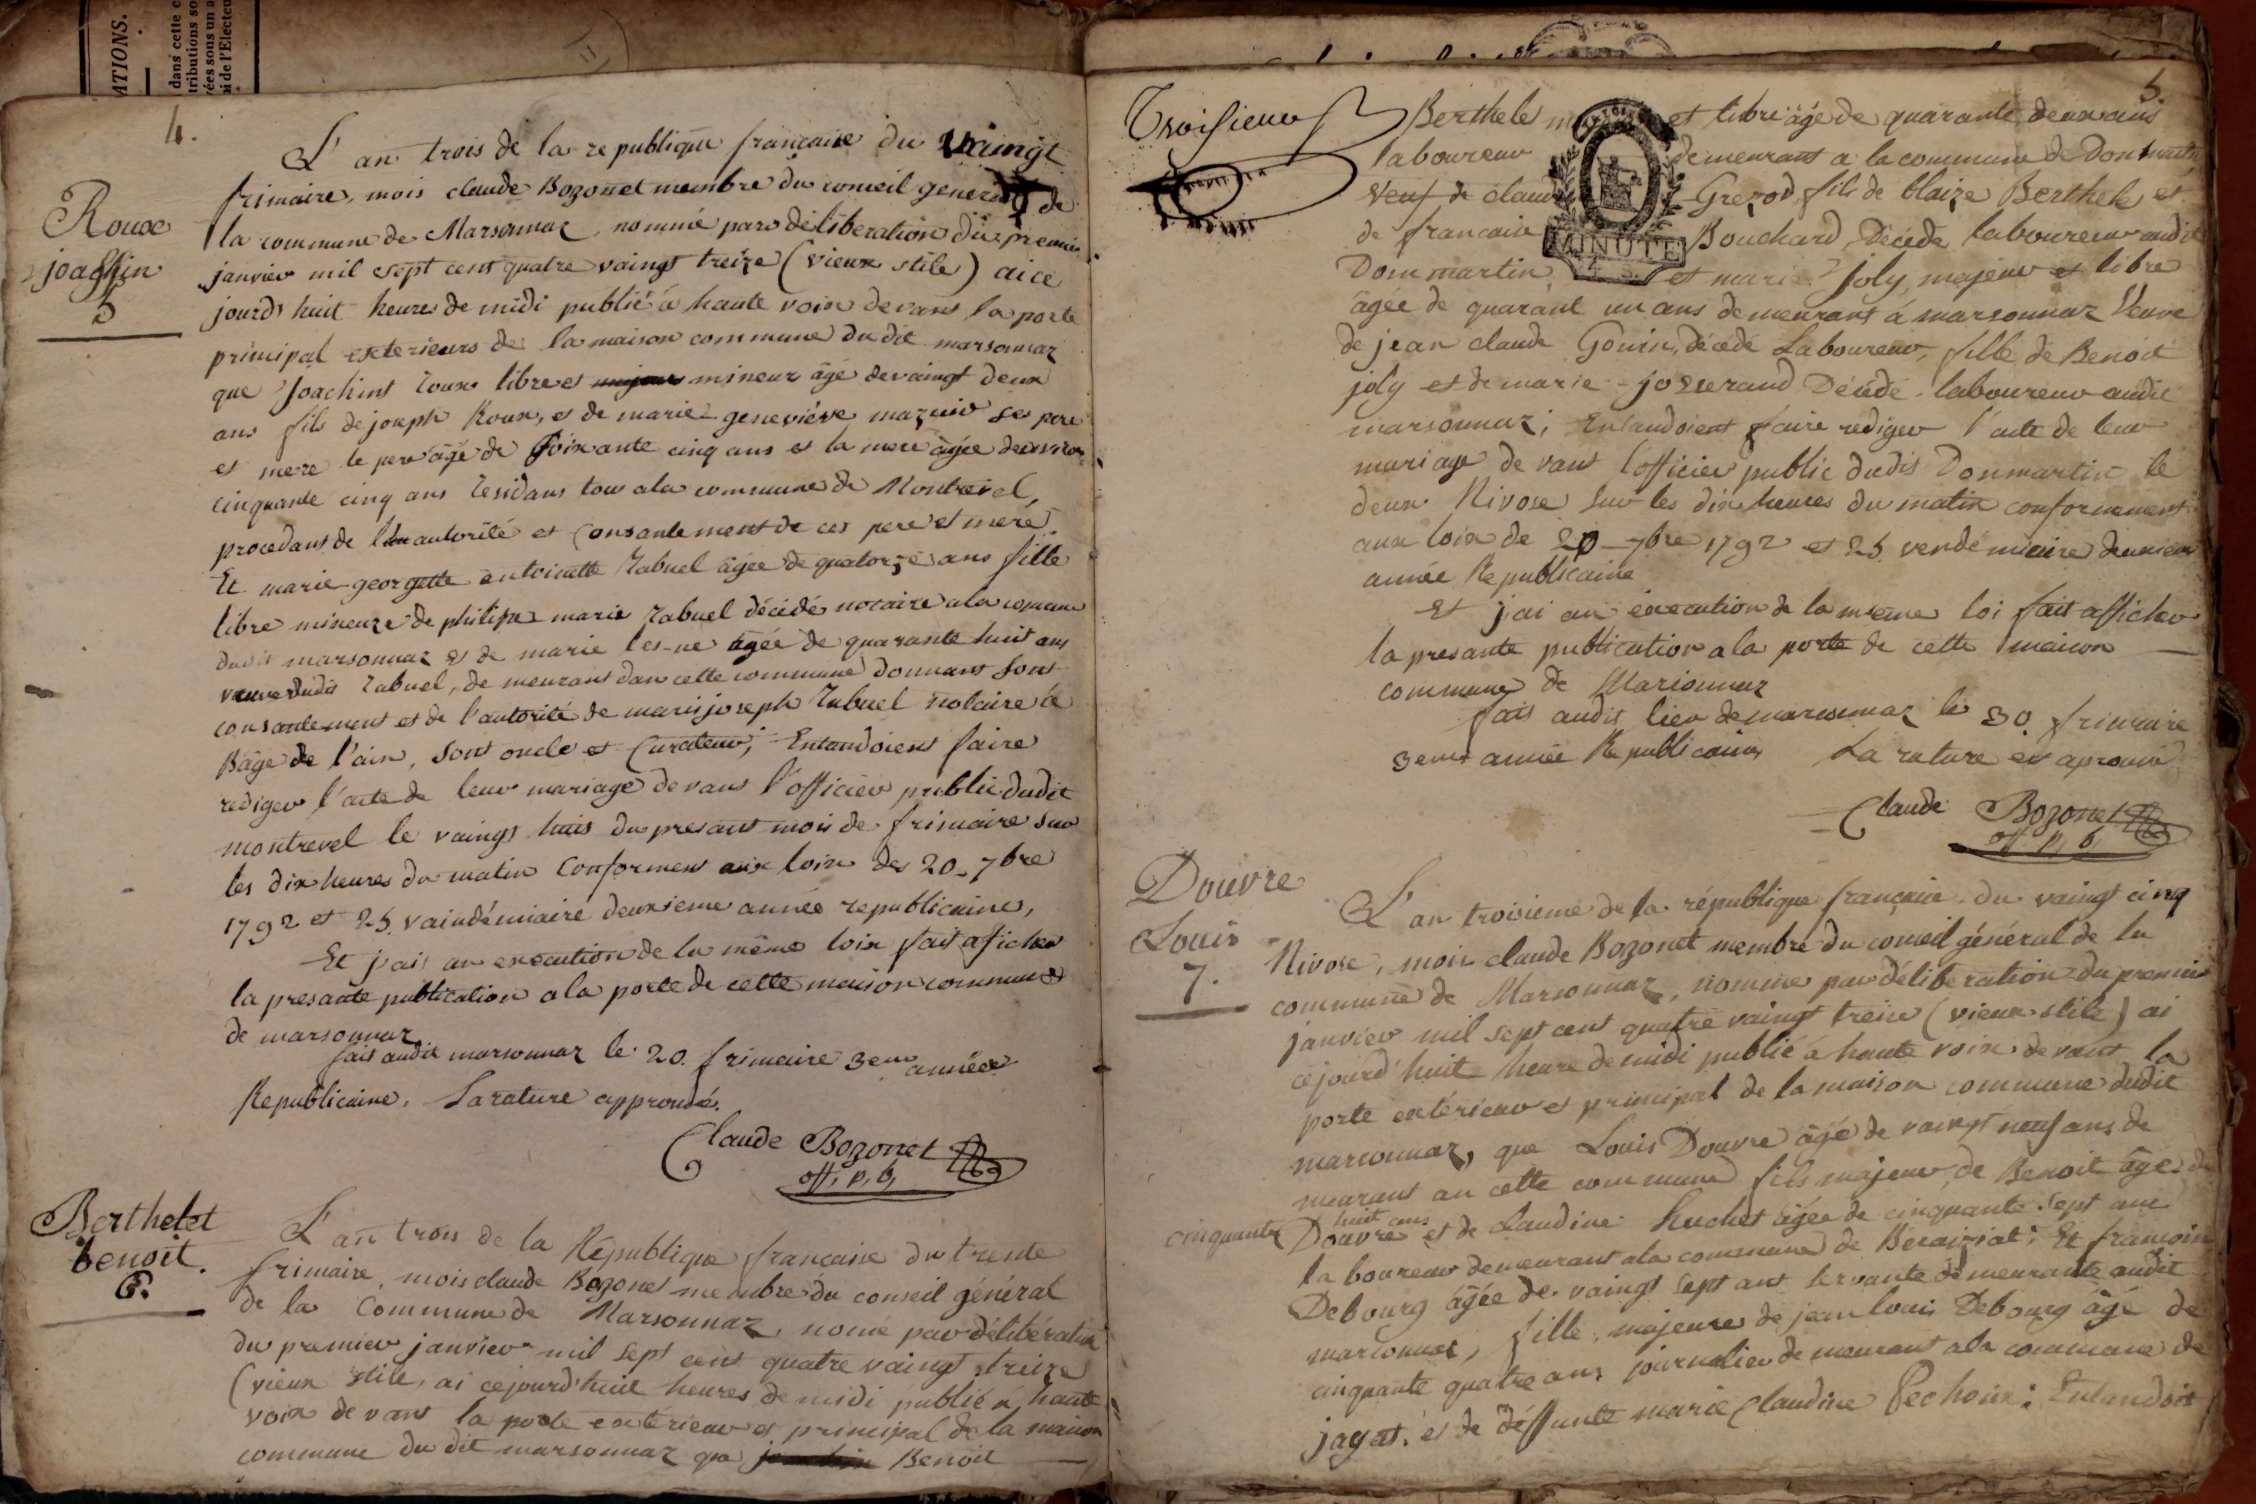 4.
Roux
joachin
5
L'an trois de la republique francaise du vaingt
frimaire, mois claude Bozonnet membre du conseil general de
la commune de Marsonnaz, nommé par déliberation du premier
janvier mil sept cent quatre vaingt treize (vieux stile) ai ce
jourd'huit heures de midi publié à haute voix devant la porte
principal exterieurs de la maison commune du dit marsonnaz
que Joachint roux libre et mineur âgé de vaingt deux
ans fils de joseph Roux, et de marie geneviéve mazuir ses pere
et mere le pere âgé de soixante cinq ans et la mere âgée denviron
cinquante cinq ans residans tous a la commune de Montrevel,
procedant de l'autorité et consantement de ces pere et mere.
Et marie georgette antoinette rabuel âgée de quatorze ans fille
libre mineure de philipe marie rabuel décédé notaire a la comune
dudit marsonnaz et de marie âgée de quarante huit ans
veuve dudit rabuel, demeurant dans cette commune donnant sont
consantement et de l'autorité de marie joseph rabuel notaire a
Bâge de l'ain, sont oncle et Curateur; Entandoient faire
rediger l'acte de leur mariage devant l'officier public dudit
montrevel le vaingt huit du presant mois de frimaire sur
les dix heures du matin conforment aux loix des 20 7bre
1792 et 25 vaindémiaire deuxieme année republicaine,
Et j'ais an execution de la même loix fait aficher
la presante publication a la porte de cette maison commune
de marsonnaz
fait audit marsonnaz le 20. frimaire 3eme année
Republicaine. La rature approuvé.
Claude Bozonet
off, p, b,
Berthelet
benoit.
6.
L'an trois de la République francaise du trente
frimaire, mois claude Bozonet membre du conseil général
de la Commune de Marsonnaz, nomé par délibération
du premier janvier mil sept cent quatre vaingt treize
(vieux stile, ai cejourd'huit heures de midi publié à haute
voix devant la porte extérieur et principal de la maison
commune du dit marsonnaz que Benoit
5.
Troisieme
Berthele et libre âgé de quarante deux ans
laboureur demeurant a la commune de Dommartin
veuf de claud Grezod, fils de blaize Berthele et
de francaise Bouchard, Décédé laboureur audit
Dommartin, et marie Joly, majeur et libre
âgée de quarant un ans demeurant á marsonnaz veuve
de jean claude Gonin, décédé Laboureur, fille de Benoit
joly et de marie josserand Décédé laboureur audit
marsonnaz; Entandoient faire rediger l'acte de leur
mariage devant l'officier public dudit Donmartin le
deux Nivose sur les dix heures du matin conformement
aux loix de 20 7bre 1792 et 25 vendémiaire deuxieme
année Republicaine
Et j'ai an éxecution de la meme loi fait afficher
la presante publication a la porte de cette maison
commune de Marsonnaz
fais audit lieu de marsonnaz le 30. frimaire
3eme année Republicaine La rature est aprouvé
Claude Bozonet
off, p, b,
Douvre
Louis
7.
L'an troisieme de la république francaise du vaingt cinq
Nivose, mois claude Bozonet membre du conseil général de la
commune de Marsonnaz, nomme par déliberation du premier
janvier mil sept cent quatre vaingt treize (vieux stile) ai
cejourd'huit heure de midi publié à haute voix devant la
porte extérieur et principal de la maison commune dudit
marsonnaz, que Louis Douvre âgé de vaingt neuf ans de
meurant an cette commune fils majeur de Benoit âgé de
cinquante huit ans
Douvre et de Claudine huchet âgée de cinquante sept ans
laboureur demeurant a la commune de Beraiziat; Et francoise
Debourg âgée de vaingt sept ans servante demeurante audit
marsonnaz, fille majeure de jean louis Debourg âgé de
cinquante quatre ans journalier demeurant a la commune de
jayat. et de déffunte marie Claudine Pechoux; Entandoit
MINUTE